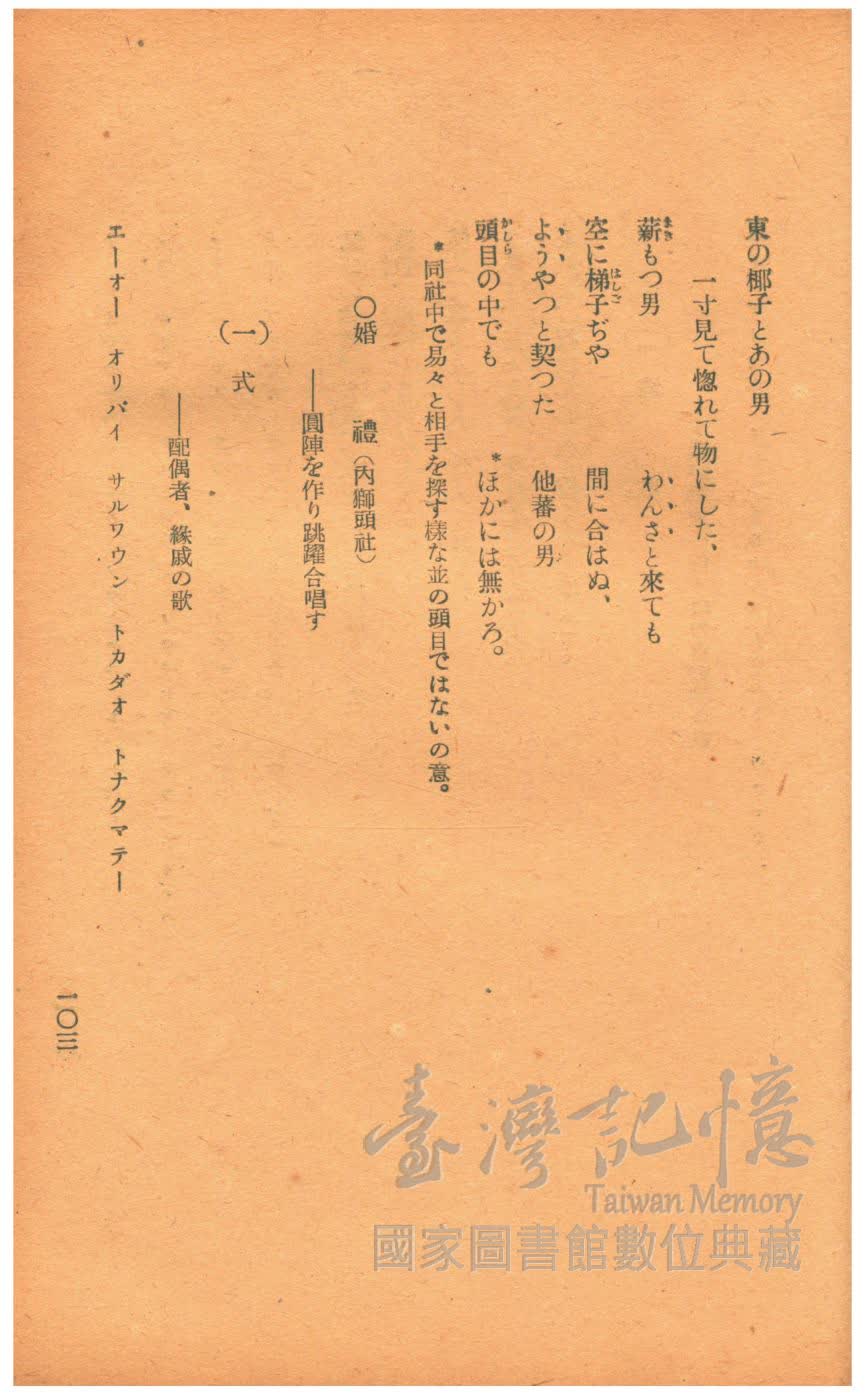 東の椰子とあの男
一寸見て惚れて物にした、
薪もつ男　わんさと來ても
空に梯子ぢや　間に合はぬ、
ようやつと契つた　他蕃の男
頭目の中でも　*ほかには無かろ。
*同社中で易々と相手を探す樣な並の頭目ではないの意。
〇婚　禮（內獅頭社）
――圓陣を作り跳躍合唱す
（一）式
――配偶者、緣戚の歌
エーオー　オリバイ　サルワウン　トカダオ　トナクマテー
一〇三
臺灣記憶
Taiwan Memory
國家圖書館數位典藏